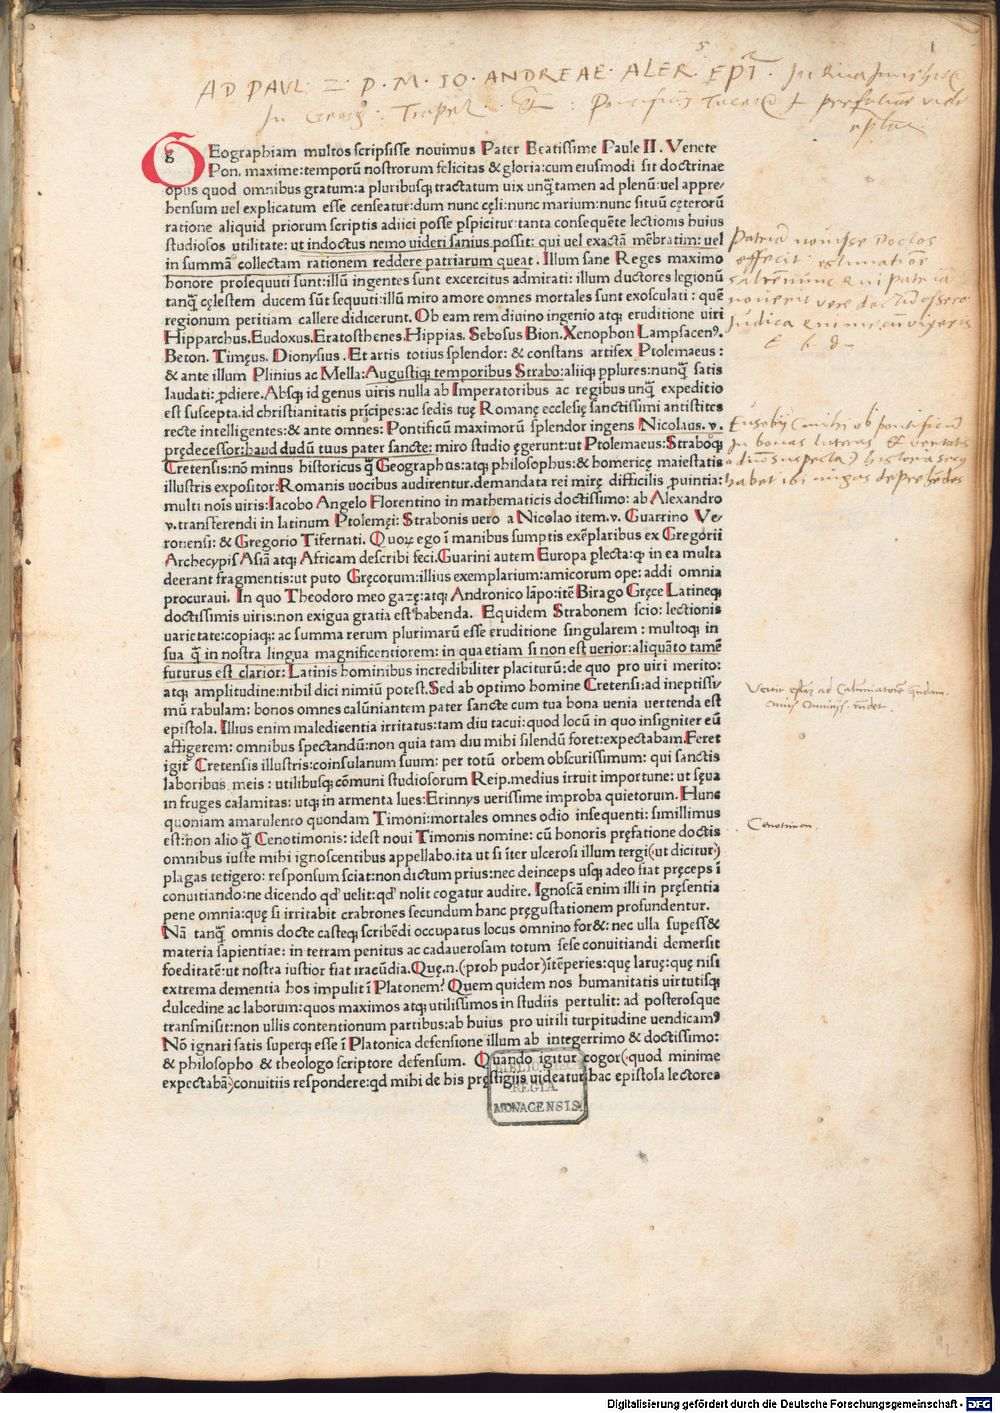 AD PAVL · II · P · M · IO · ANDREAE · ALER EPI
GEographiam multos scripsisse nouimus Pater Beatissime Paule II. Venete
Pon. maxime: temporū nostrorum felicitas & gloria: cum eiusmodi sit doctrinae
opus quod omnibus gratum: a pluribusq; tractatum uix unq̄ tamen ad plenū: uel appre/
hensum uel explicatum esse censeatur: dum nunc cęli: nunc marium: nunc situū cęterorū
ratione aliquid priorum scriptis adiici posse ꝑspicitur: tanta consequēte lectionis huius
studiosos utilitate: ut indoctus nemo uideri sanius possit: qui uel exactā mēbratim: uel
in summā collectam rationem reddere patriarum queat. Illum sane Reges maximo
honore prosequuti sunt: illū ingentes sunt excercitus admirati: illum ductores legionū
tanq̄ cęlestem ducem sūt sequuti: illū miro amore omnes mortales sunt exosculati: quē
regionum peritiam callere didicerunt. Ob eam rem diuino ingenio atq; eruditione uiri
Hipparchus. Eudoxus. Eratosthenes. Hippias. Sebosus Bion. Xenophon Lampsacenꝰ.
Beton. Timęus. Dionysius. Et artis totius splendor: & constans artifex Ptolemaeus:
& ante illum Plinius ac Mella: Augustiq; temporibus Strabo: aliiq; pplures: nunq̄ satis
laudati: ꝓdiere. Absq; id genus uiris nulla ab Imperatoribus ac regibus unq̄ expeditio
est suscepta. id christianitatis prīcipes: ac sedis tuę Romanę ecclesię sanctissimi antistites
recte intelligentes: & ante omnes: Pontificū maximorū splendor ingens Nicolaus. v.
prędecessor: haud dudū tuus pater sancte: miro studio ęgerunt: ut Ptolemaeus: Straboq;
Cretensis: nō minus historicus q̄ Geographus: atq; philosophus: & homericę maiestatis
illustris expositor: Romanis uocibus audirentur. demandata rei mirę difficilis ꝓuintia:
multi nois uiris: Iacobo Angelo Florentino in mathematicis doctissimo: ab Alexandro
v. transferendi in latinum Ptolemęi: Strabonis uero a Nicolao item. v. Guarrino Ve/
ronensi: & Gregorio Tifernati. Quoꝝ ego ī manibus sumptis exēplaribus ex Gregorii
Archecypis Asiā atq; Africam describi feci. Guarini autem Europa ꝑlecta: ꝙ in ea multa
deerant fragmentis: ut puto Gręcorum: illius exemplarium: amicorum ope: addi omnia
procuraui. In quo Theodoro meo gazę: atq; Andronico lāpo: itē Birago Gręce Latineq;
doctissimis uiris: non exigua gratia est habenda. Equidem Strabonem scio: lectionis
uarietate: copiaq;: ac summa rerum plurimarū esse eruditione singularem: multoq; in
sua q̄ in nostra lingua magnificentiorem: in qua etiam si non est uerior: aliquāto tamē
futurus est clarior: Latinis hominibus incredibiliter placiturū: de quo pro uiri merito:
atq; amplitudine: nihil dici nimiū potest. Sed ab optimo homine Cretensi: ad ineptissi/
mū rabulam: bonos omnes calūniantem pater sancte cum tua bona uenia uertenda est
epistola. Illius enim maledicentia irritatus: tam diu tacui: quod locū in quo insigniter eū
affigerem: omnibus spectandū: non quia tam diu mihi silendū foret: expectabam. Feret
igit̄ Cretensis illustris: coinsulanum suum: per totū orbem obscurissimum: qui sanctis
laboribus meis: utilibusq; cōmuni studiosorum Reip. medius irruit importune: ut sęua
in fruges calamitas: utq; in armenta lues: Erinnys uerissime improba quietorum. Hunc
quoniam amarulento quondam Timoni: mortales omnes odio insequenti: simillimus
est: non alio q̄ Cenotimonis: idest noui Timonis nomine: cū honoris pręfatione doctis
omnibus iuste mihi ignoscentibus appellabo. ita ut si īter ulcerosi illum tergi (ut dicitur)
plagas tetigero: responsum sciat: non dictum prius: nec deinceps usq; adeo fiat pręceps ī
conuitiando: ne dicendo qd' uelit: qd' nolit cogatur audire. Ignoscā enim illi in pręsentia
pene omnia: quę si irritabit crabrones secundum hanc pręgustationem profundentur.
Nā tanq̄ omnis docte casteq; scribēdi occupatus locus omnino for&: nec ulla supess&
materia sapientiae: in tetram penitus ac cadauerosam totum sese conuitiandi demersit
foeditatē: ut nostra iustior fiat iracūdia. Quę. n. (proh pudor) ītēperies: quę laruę: quę nisi
extrema dementia hos impulit ī Platonem? Quem quidem nos humanitatis uirtutisq;
dulcedine ac laborum: quos maximos atq; utilissimos in studiis pertulit: ad posterosque
transmisit: non ullis contentionum partibus: ab huius pro uirili turpitudine uendicamꝰ
Nō ignari satis superq; esse ī Platonica defensione illum ab integerrimo & doctissimo:
& philosopho & theologo scriptore defensum. Quando igitur cogor (quod minime
expectabā) conuitiis respondere: qd mihi de his pręstigiis uideatur: hac epistola lectores
BIBLIOTHECA
REGIA
MONACENSIS.
Cenotimon.
Digitalisierung gefördert durch die Deutsche Forschungsgemeinschaft - DFG